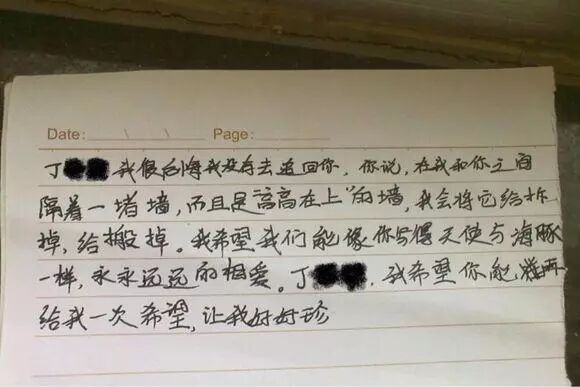 Date: \ \ Page:
丁 我很后悔我没有去追回你，你说，在我和你之间
隔着一堵墙，而且是“高高在上”的墙，我会将它给拆
掉，给搬掉。我希望我们能像你写得天使与海豚
一样，永永远远的相爱。丁 ，我希望你能
给我一次希望，让我好好珍